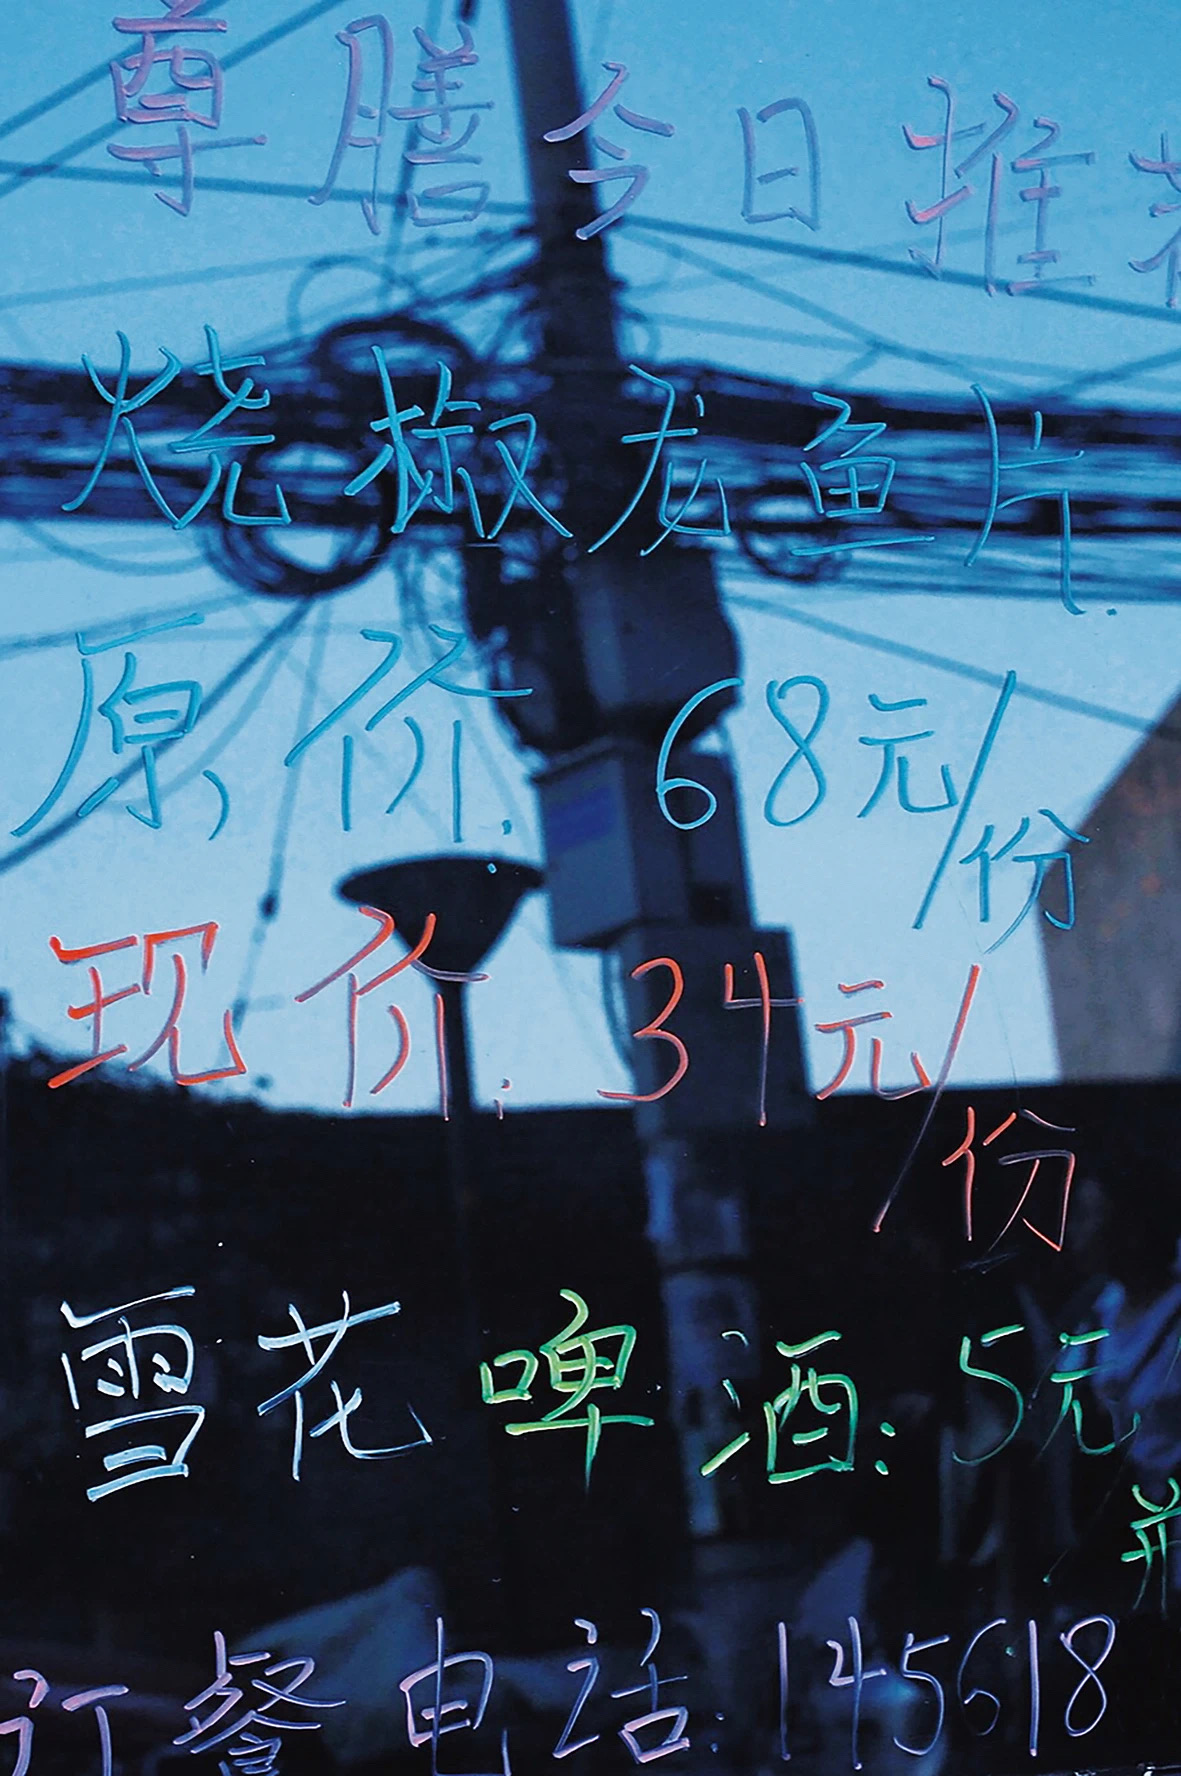 尊膳今日推荐
烧椒龙鱼片.
原价: 68元/份
现价: 34元/份
雪花啤酒: 5元/瓶
订餐电话: 145618